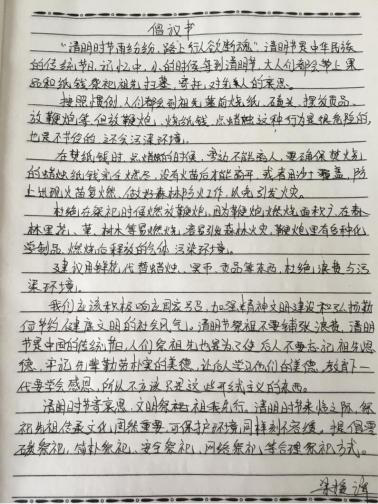 倡议书
"清明时节雨纷纷,路上行人欲断魂。"清明节是中华民族
的传统节日。记忆中,小的时候每到清明节,大人们都会带上果
品和纸钱祭祀祖先扫墓,寄托对先人的哀思。
按照惯例,人们都会到祖先墓前烧纸、磕头、摆放贡品、
放鞭炮等,但放鞭炮,烧纸钱,点蜡烛这种行为是很危险的,
也是不节俭的,还会污染环境。
在焚纸钱时,点蜡烛的时候,旁边不能离人,要确保焚烧
的蜡烛纸钱完全燃尽,没有火苗后才能离开,或者用沙土覆盖,防
止出现火苗复燃,做好森林防火工作,从而引发火灾。
杜绝在祭祀时候燃放鞭炮,因为鞭炮燃烧面积广,在森
林里花、草、树木等易燃烧,容易引发森林火灾,鞭炮里有各种化
学制品,燃烧后释放的气体,污染环境。
建议用鲜花代替蜡烛、果币、贡品等东西,杜绝浪费与污
染环境。
我们应该积极响应国家号召,加强精神文明建设和弘扬勤
俭节约健康文明的社会风气。清明节祭祖不要铺张浪费,清明节
是中国的传统节日,人们祭祖先也是为了使后人不要忘记祖先恩
德,牢记先辈勤劳朴实的美德,让后人学习他们的美德,教育下一
代要学会感恩,所以不应该只是这些形式主义的东西。
清明时节寄哀思,文明祭祀我先行。清明时节来临之际,祭
祀先祖传承文化固然重要,可保护环境同样刻不容缓。提倡零
碳祭祀,简朴祭祀,安全祭祀,网络祭祀,等合理祭祀方式。